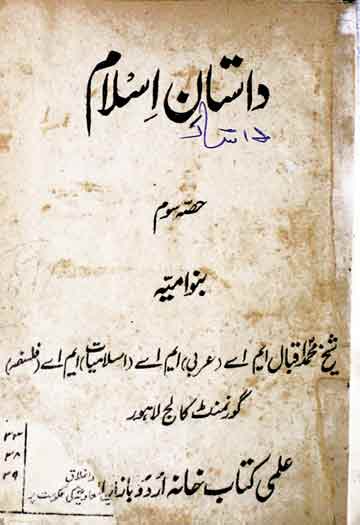 داستانِ اِسلام
حصّہ سوم
بنو امیّہ
شیخ محمّد اقبال ایم اے (عربی) ایم اے (اسلامیات) ایم اے (فلسفہ)
گورنمنٹ کالج لاہور
علمی کتاب خانہ اُردو بازار
۳۸
۳۹